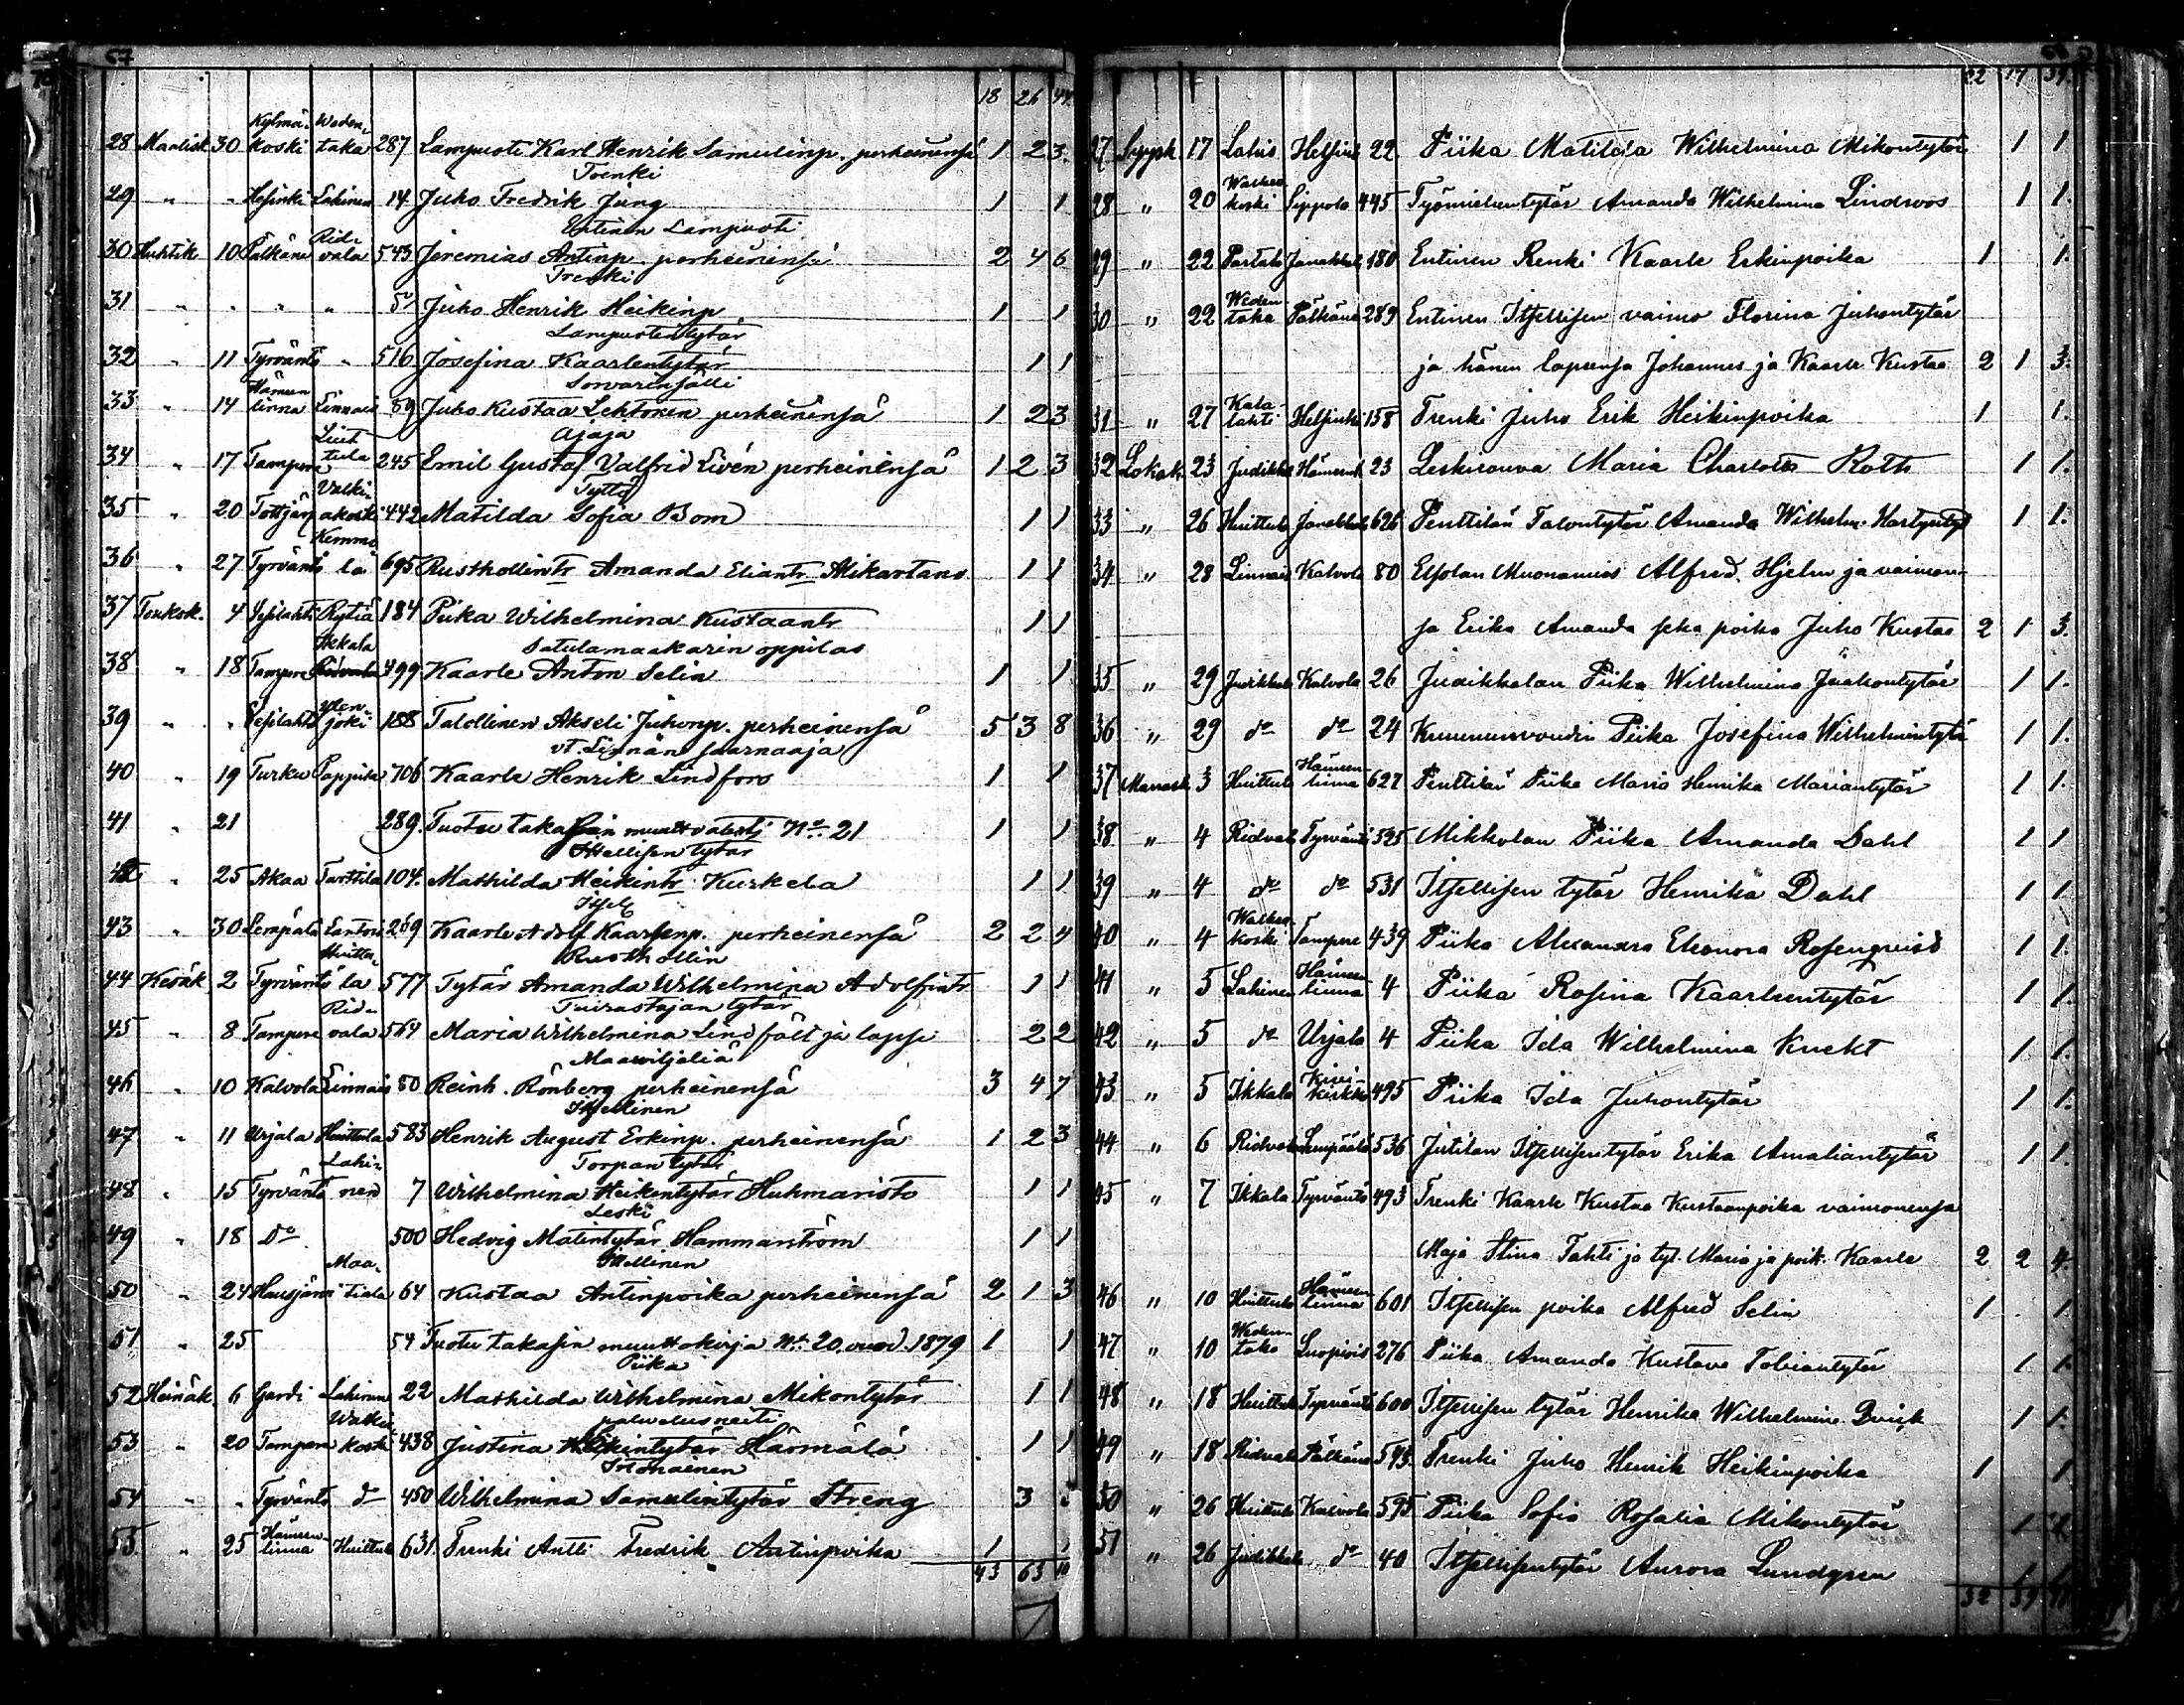 67
18 26 44
Kylmä- Weden-
28 Maalisk 30 koski taka 287 Lampuoti Karl Henrik Samulinp. perheinensä 1 2 3.
Trenki
29 " " Helsinki Lahinen 14 Juho Fredrik Jung 1 1
Rid- Entinen Lampuoti
30 Huhtik 10 Pälkäne vala 543 Jeremias Antinp perheinensä 2 4 6
Trenki
31 " " " " Juho Henrik Heikinp 1 1
Lampuotin tytär
32 " 11 Tyrväntö " 516 Josefina Kaarlentytär 1 1
Hämeen Sorvarinsälli
33 " 14 linna Linnais 89 Juho Kustaa Lehtonen perheinensä 1 2 3
Liut Ajaja
34 " 17 Tampere tula 245 Emil Gustaf Valfrid Livén perheinensä 1 2 3
Valki- Tyttö
35 " 20 Tottjärvi akoski 442 Matilda Sofia Bom 1 1
Kemmo
36 " 27 Tyrväntö la 695 Rusthollintr Amanda Eliantr Mikartano 1 1
37 Toukok. 4 Vesilahti Rytiä 184 Piika Wilhelmina Kustaantr 1 1
Ikkala Satulamaakarin oppilas
38 " 18 Tampere 499 Kaarle Anton Selin 1 1
39 " " Vesilahti joki 188 Talollinen Akseli Juhonp. perheinensä 5 3 8
vt. Linnan saarnaaja
40 " 19 Turku Pappila 706 Kaarle Henrik Lindfors 1 1
41 " 21 289. Tuotu takasin muuttotodistj No 21 1 1
Itsellisen tytär
42 " 25 Akaa Tarttila 104. Mathilda Heikintr Kurkela 1 1
Itsell
43 " 30 Lempälä 269 Kaarle Adolf Kaarlenp. perheinensä 2 2 4
Huittu- Rusthollin
44 Kesäk 2 Tyrväntö la 577 Tytär Amanda Wilhelmina Adolfintr 1 1
Rid-
45 " 8 Tampere vala 564 Maria Wilhelmina Lindfält ja lapsi 2 2
Maawiljeliä
46 " 10 Kalvola Linnais 80 Reinh. Rönberg perheinensä 3 4 7
Itsellinen
47 " 11 Urjala Huittula 583 Henrik August Erkinp. perheinensä 1 2 3
Lahi- Torpan tytär
48 " 15 Tyrväntö nen 7 Wilhelmina Heikentytär Huhmaristo 1 1
Leski
49 " 18 Do 500 Hedvig Matintytär Hammarström 1 1
Maa- Itsellinen
50 " 24 Hausjärvi tiala 64 Kustaa Antinpoika perheinensä 2 1 3
51 " 25 54 Tuotu takasin muuttokirja No 20 vuod. 1879 1 1
Piika
52 Heinäk. 6 Lahinen 22 Mathilda Wilhelmina Mikontytär 1 1
Walkia- palvelusneiti
53 " 20 Tampere koski 438 Justina Heikintytär Härmälä 1 1
Irtonainen
54 " " Tyrväntö do 450 Wilhelmina Samulintytär Streng 3
Hämeen-
55. " 25 linna Huittula 631. Trenki Antti Fredrik Antinpoika 1 1
43 63
22 17 39.
27 Syysk 17 Lahis Helsink 22 Piika Matilda Wilhelmina Mikontytär 1 1
Walkea
28 " 20 koski Sippola 445 Työmiehentytär Amanda Wilhelmina Lindroos 1 1.
29 " 22 Partala Janakkala 180 Entinen Renki Kaarle Erkinpoika 1 1.
Weden-
30 " 22 taka Pälkäne 289 Entinen Itsellisen vaimo Florina Juhontytär
ja hänen lapsensa Johannes ja Kaarle Kustaa 2 1 3.
Kata-
31 " 27 lahti Helsinki 158 Trenki Juho Erik Heikinpoika 1 1.
32 Lokak. 23 Judikkala Hämeenl 23 Leskirouva Maria Charlotta Roth 1 1.
33 " 26 Huittula Janakkala 626 Penttilän Talontytär Amanda Wilhelm. 1 1.
34 " 28 Linnais Kalvola 80 Elsolan Muonamies Alfred Hjelm ja vaimon-
sa Erika Amanda seka poika Juho Kustaa 2 1 3.
35 " 29 Judikkala Kalvola 26 Judikkalan Piika Wilhelmina Juhontytär 1 1.
36 " 29 do do 24 Kruununvoudin Piika Josefina Wilhelmintytär 1 1.
Hämeen-
37 Marrask 3 Huittula linna 627 Penttilän Piika Maria Henrika Mariantytär 1 1.
38 " 4 Ridvala Tyrväntö 525 Mikkolan Piika Amanda Dahl 1 1
39 " 4 do do 531 Itsellisen tytär Henrika Dahl 1 1
Walkea
40 " 4 koski Tampere 439 Piika Alexandra Eleonora Rosenqvist 1 1.
Hämeen
41 " 5 Lahinen linna 4 Piika Rosina Kaarlentytär 1 1.
42 " 5 do Urjala 4 Piika Ida Wilhelmina Knekt 1 1.
Kivi-
43 " 5 Ikkala kirkko 495 Piika Ida Juhontytär 1 1.
44 " 6 Ridvala Lempäälä 536 Jutilan Itsellisentytär Erika Amaliantytär 1 1.
45 " 7 Ikkala Tyrväntö 493 Trenki Kaarle Kustaa Kustaanpoika vaimonensa
Maja Stina Tahti ja tyt. Maria ja poik. Kaarle 2 2 4.
Hämeen
46 " 10 Huittula linna 601 Itsellisen poika Alfred Selin 1 1.
Weden-
47 " 10 taka Luopiois 276 Piika Amanda Kustava Tobiantytär 1 1.
48 " 18 Huittula Tyrväntö 600 Itsellisen tytär Henrika Wilhelmina Qvick 1 1.
49 " 18 Ridvala Pälkäne 543. Trenki Juho Henrik Heikinpoika 1 1
50 " 26 Huittula Kalvola 595 Piika Sofia Rosalia Mikontytär 1 1.
51 " 26 Judikkala do 40 Itsellisentytär Aurora Lundgren 1 1
32 39